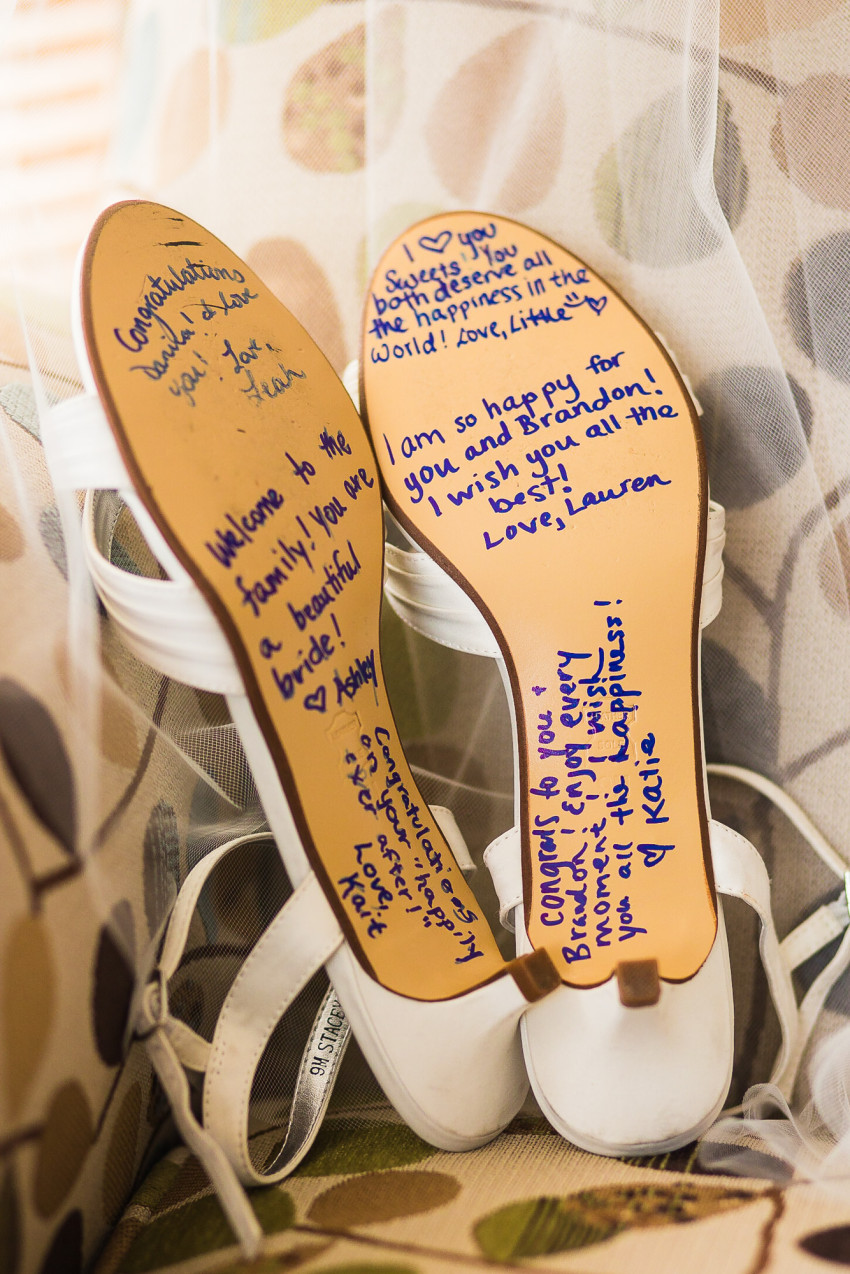 Congratulations
Danila! I love
you! Love,
Leah
Welcome to the
family! You are
a beautiful
bride!
♡ Ashley
Congratulations
on your "happily
ever after!"
Love,
Kait
9M STACEY
I ♡ you
Sweets! You
both deserve all
the happiness in the
World! Love, Little ♡
I am so happy for
you and Brandon!
I wish you all the
best!
Love, Lauren
congrats to you +
Brandon! Enjoy every
moment! I wish
you all the happiness!
♡ Katie